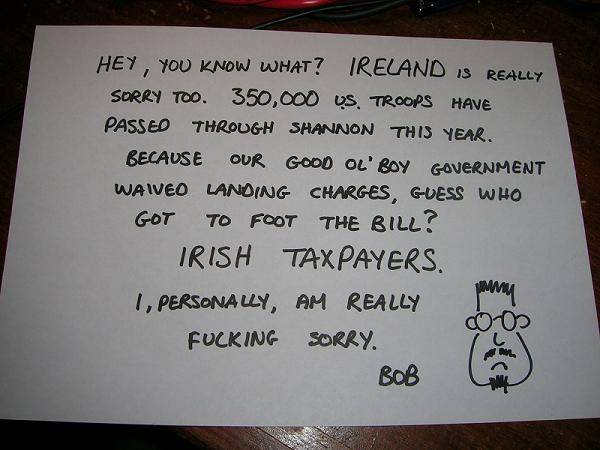 HEY, YOU KNOW WHAT? IRELAND IS REALLY
SORRY TOO. 350,000 U.S. TROOPS HAVE
PASSED THROUGH SHANNON THIS YEAR.
BECAUSE OUR GOOD OL' BOY GOVERNMENT
WAIVED LANDING CHARGES, GUESS WHO
GOT TO FOOT THE BILL?
IRISH TAXPAYERS.
I, PERSONALLY, AM REALLY
FUCKING SORRY.
BOB